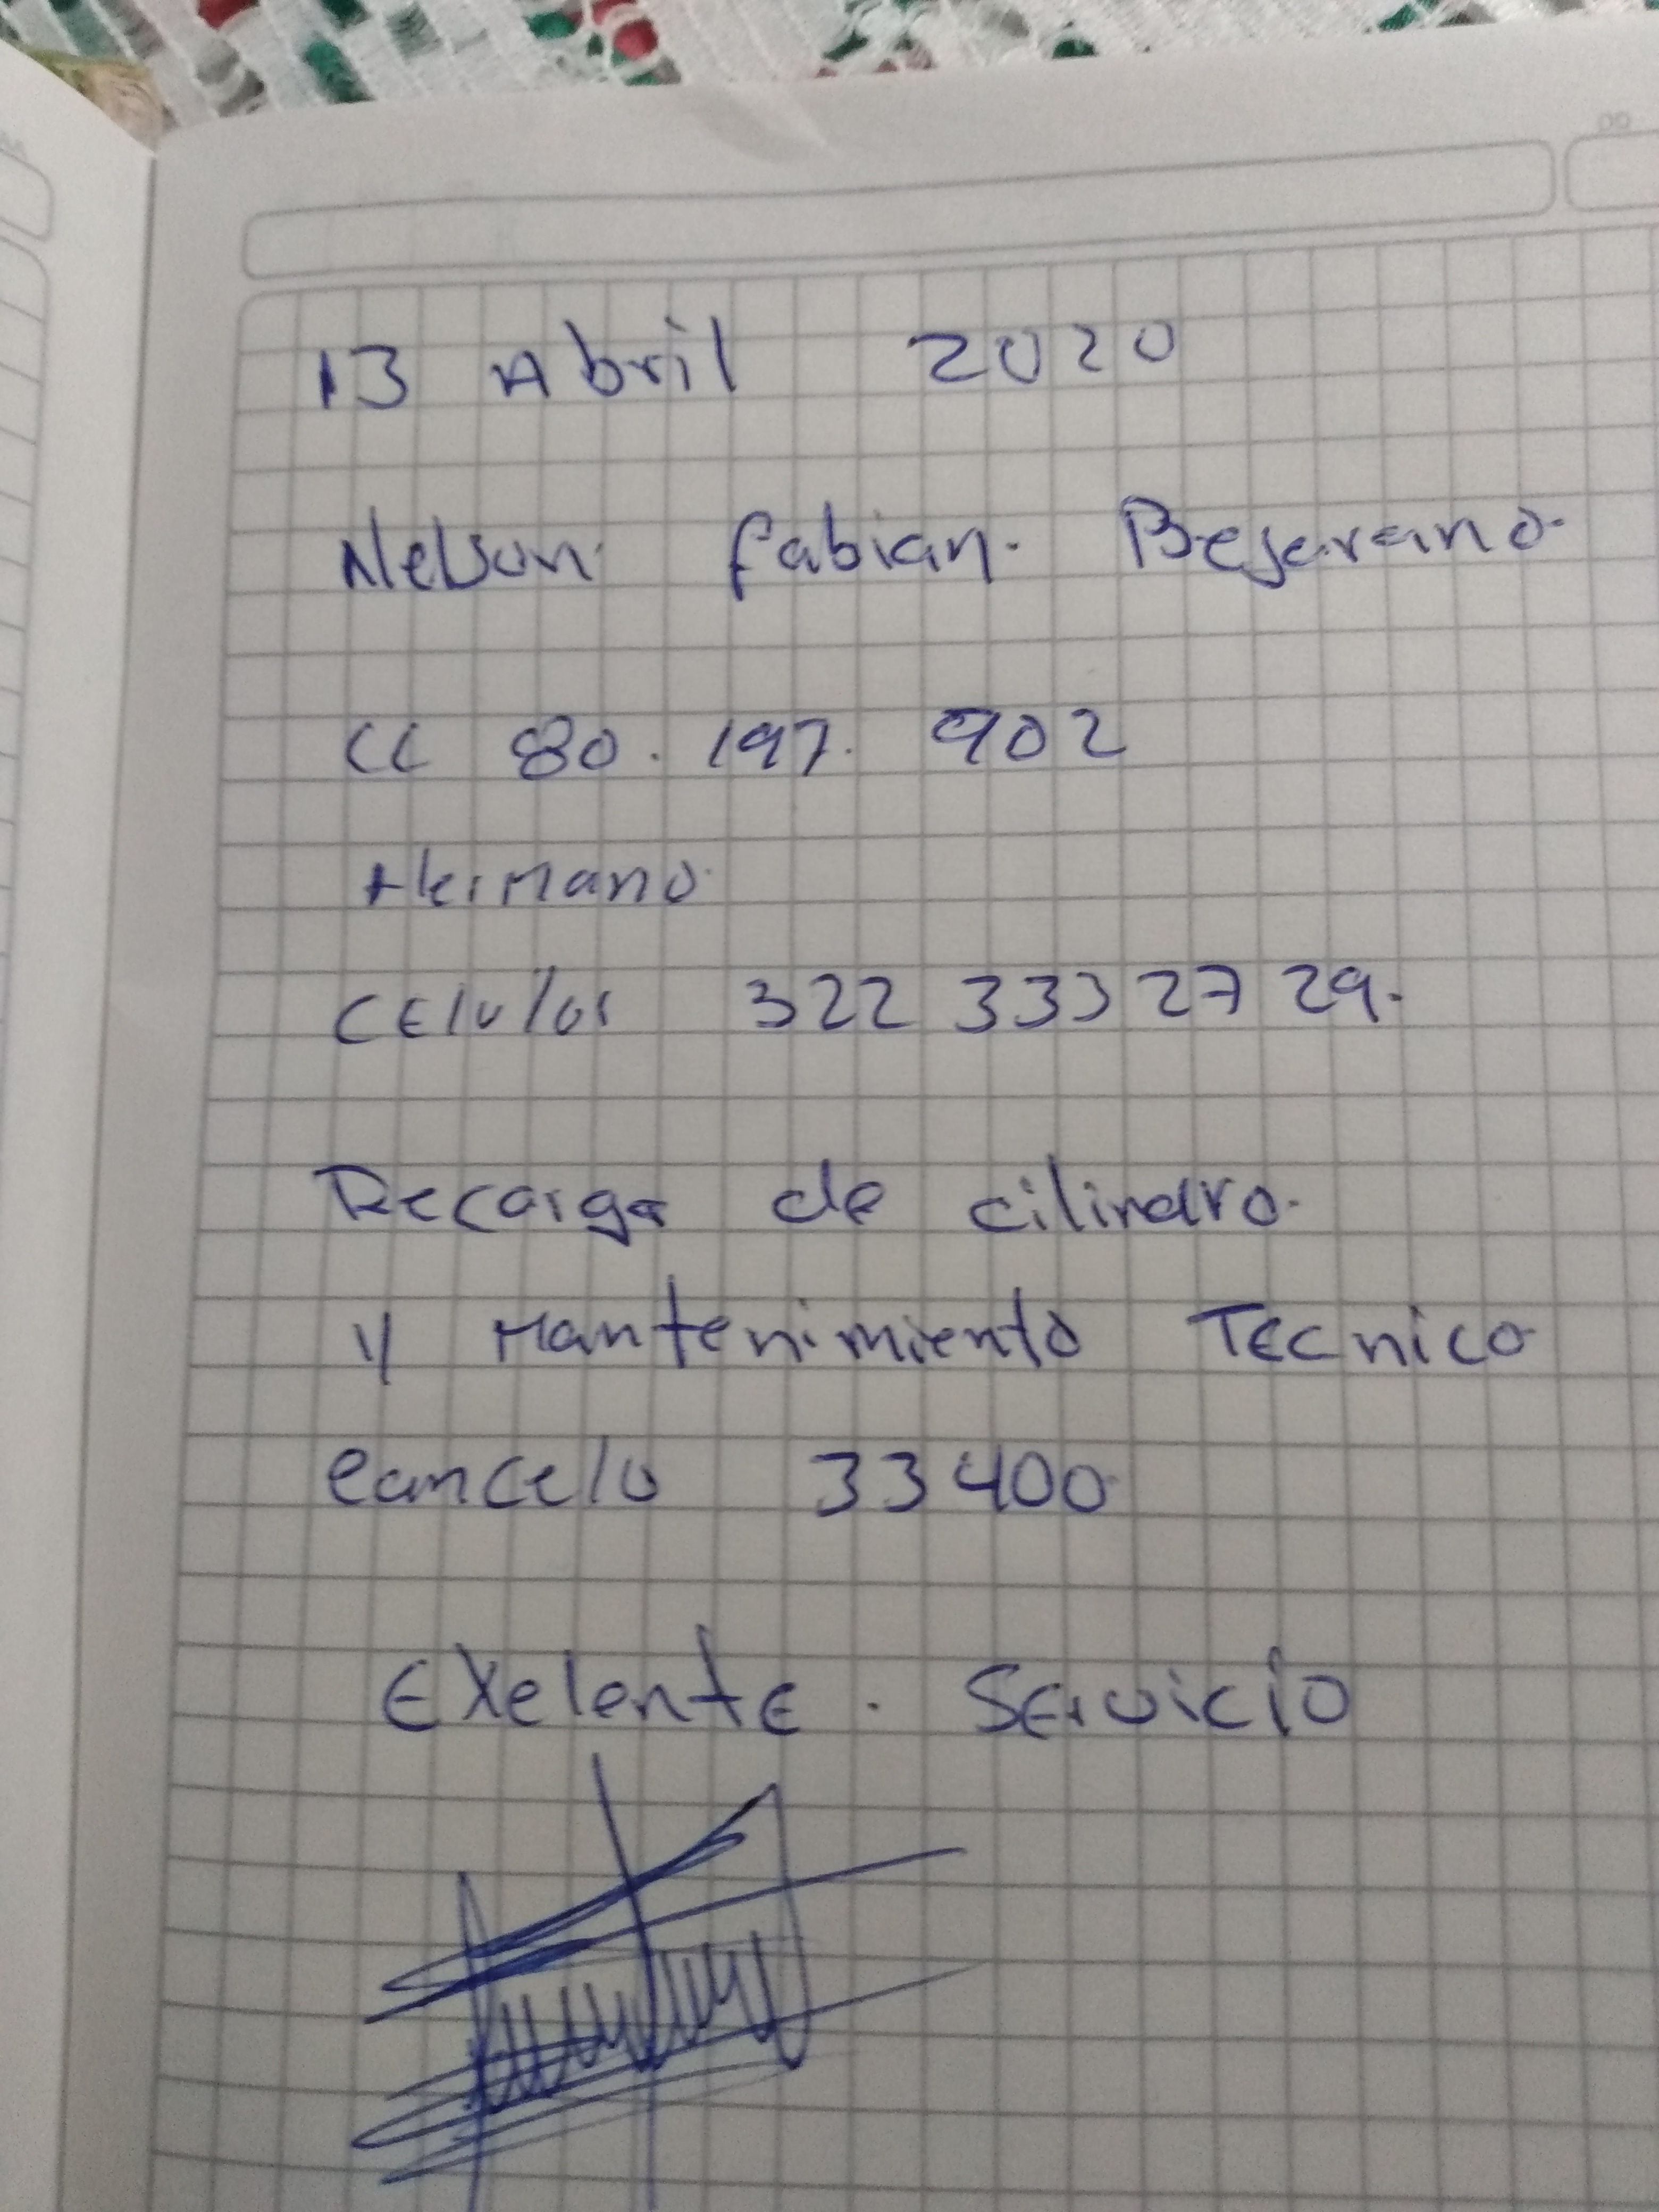 13 Abril 2020
Nelson Fabian. Bejarano
CC 80.197.902
Hermano
Celular 322 333 27 29.
Recarga de cilindro.
y Mantenimiento Tecnico
Cancelo 33400
Exelente. Servicio